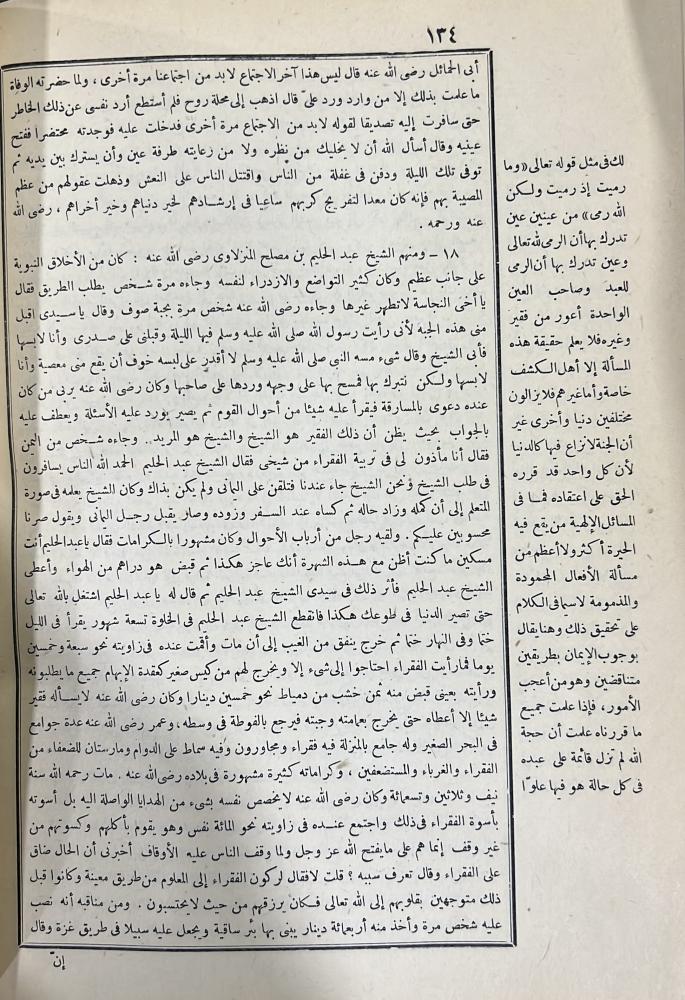 ١٣٤
أبى الحمائل رضى الله عنه قال ليس هذا آخر الاجتماع لابد من اجتماعنا مرة أخرى ، ولما حضرته الوفاة
ما علمت بذلك إلا من وارد ورد علىّ قال اذهب إلى محلة روح فلم أستطع أرد نفسى عن ذلك الخاطر
حتى سافرت إليه تصديقا لقوله لابد من الاجتماع مرة أخرى فدخلت عليه فوجدته محتضرا ففتح
عينيه وقال أسأل الله أن لا يخليك من نظره ولا من رعايته طرفة عين وأن يسترك بين يديه ثم
توفى تلك الليلة ودفن فى غفلة من الناس واقتتل الناس على النعش وذهلت عقولهم من عظم
المصيبة بهم فإنه كان معدا لتفريج كربهم ساعيا فى إرشادهم لخير دنياهم وخير أخراهم ، رضى الله
عنه ورحمه .
١٨ – ومنهم الشيخ عبد الحليم بن مصلح المنزلاوى رضى الله عنه : كان من الأخلاق النبوية
على جانب عظيم وكان كثير التواضع والازدراء لنفسه وجاءه مرة شخص يطلب الطريق فقال
يا أخى النجاسة لا تطهر غيرها وجاءه رضى الله عنه شخص مرة بجبة صوف وقال يا سيدى اقبل
منى هذه الجبة لأنى رأيت رسول الله صلى الله عليه وسلم فيها الليلة وقبلنى على صدرى وأنا لابسها
فأبى الشيخ وقال شىء مسه النبى صلى الله عليه وسلم لا أقدر على لبسه خوف أن يقع منى معصية وأنا
لابسها ولكن نتبرك بها فمسح بها على وجهه وردها على صاحبها وكان رضى الله عنه يربى من كان
عنده دعوى بالمسارقة فيقرأ عليه شيئا من أحوال القوم ثم يصير يورد عليه الأسئلة ويعطف عليه
بالجواب بحيث يظن أن ذلك الفقير هو الشيخ والشيخ هو المريد.. وجاءه شخص من اليمن
فقال أنا مأذون لى فى تربية الفقراء من شيخى فقال الشيخ عبد الحليم الحمد الله الناس يسافرون
فى طلب الشيخ ونحن الشيخ جاء عندنا فتلقن على اليمانى ولم يكن بذاك وكان الشيخ يعلمه فى صورة
المتعلم إلى أن كمله وزاد حاله ثم كساه عند السفر وزوده وصار يقبل رجل اليمانى ويقول صرنا
محسوبين عليكم . ولقيه رجل من أرباب الأحوال وكان مشهورا بالكرامات فقال يا عبد الحليم أنت
مسكين ما كنت أظن مع هذه الشهرة أنك عاجز هكذا ثم قبض هو دراهم من الهواء وأعطى
الشيخ عبد الحليم فأثر ذلك فى سيدى الشيخ عبد الحليم ثم قال له يا عبد الحليم اشتغل بالله تعالى
حتى تصير الدنيا فى طوعك هكذا فانقطع الشيخ عبد الحليم فى الخلوة تسعة شهور يقرأ فى الليل
ختما وفى النهار ختما ثم خرج ينفق من الغيب إلى أن مات وأقمت عنده فى زاويته نحو سبعة وخمسين
يوما فما رأيت الفقراء احتاجوا إلى شىء إلا ويخرج لهم من كيس صغير كعقدة الإبهام جميع ما يطلبونه
ورأيته بعينى قبض منه ثمن خشب من دمياط نحو خمسين دينارا وكان رضى الله عنه لا يسأله فقير
شيئا إلا أعطاه حتى يخرج بعمامته وجبته فيرجع بالفوطة فى وسطه، وعمر رضى الله عنه عدة جوامع
فى البحر الصغير وله جامع بالمنزلة فيه فقراء ومجاورون وفيه سماط على الدوام ومارستان للضعفاء من
الفقراء والغرباء والمستضعفين ، وكراماته كثيرة مشهورة فى بلاده رضى الله عنه . مات رحمه الله سنة
نيف وثلاثين وتسعمائة وكان رضى الله عنه لا يخصص نفسه بشىء من الهدايا الواصلة اليه بل أسوته
بأسوة الفقراء فى ذلك واجتمع عنده فى زاويته نحو المائة نفس وهو يقوم بأكلهم وكسوتهم من
غير وقف إنما هم على ما يفتح الله عز وجل ولما وقف الناس عليه الأوقاف أخبرنى أن الحال ضاق
على الفقراء وقال تعرف سببه ؟ قلت لا فقال لركون الفقراء إلى المعلوم من طريق معينة وكانوا قبل
ذلك متوجهين بقلوبهم إلى الله تعالى فكان يرزقهم من حيث لا يحتسبون . ومن مناقبه أنه نصب
عليه شخص مرة وأخذ منه أربعمائة دينار يبنى بها بئر ساقية ويجعل عليه سبيلا فى طريق غزة وقال
إنّ
لك فى مثل قوله تعالى «وما
رميت إذ رميت ولكن
الله رمى» من عينين عين
تدرك بها أن الرمى لله تعالى
وعين تدرك بها أن الرمى
للعبد وصاحب العين
الواحدة أعور من فقير
وغيره فلا يعلم حقيقة هذه
المسألة إلا أهل الكشف
خاصة وأما غيرهم فلا يزالون
مختلفين دنيا وأخرى غير
أن الجنة لا نزاع فيها كالدنيا
لأن كل واحد قد قرره
الحق على اعتقاده فما فى
المسائل الإلهية من يقع فيه
الحيرة أكثر ولا أعظم من
مسألة الأفعال المحمودة
والمذمومة لاسيما فى الكلام
على تحقيق ذلك وهنا يقال
بوجوب الإيمان بطريقين
متناقضين وهو من أعجب
الأمور، فإذا علمت جميع
ما قررناه علمت أن حجة
الله لم تزل قائمة على عبده
فى كل حالة هو فيها علوّا